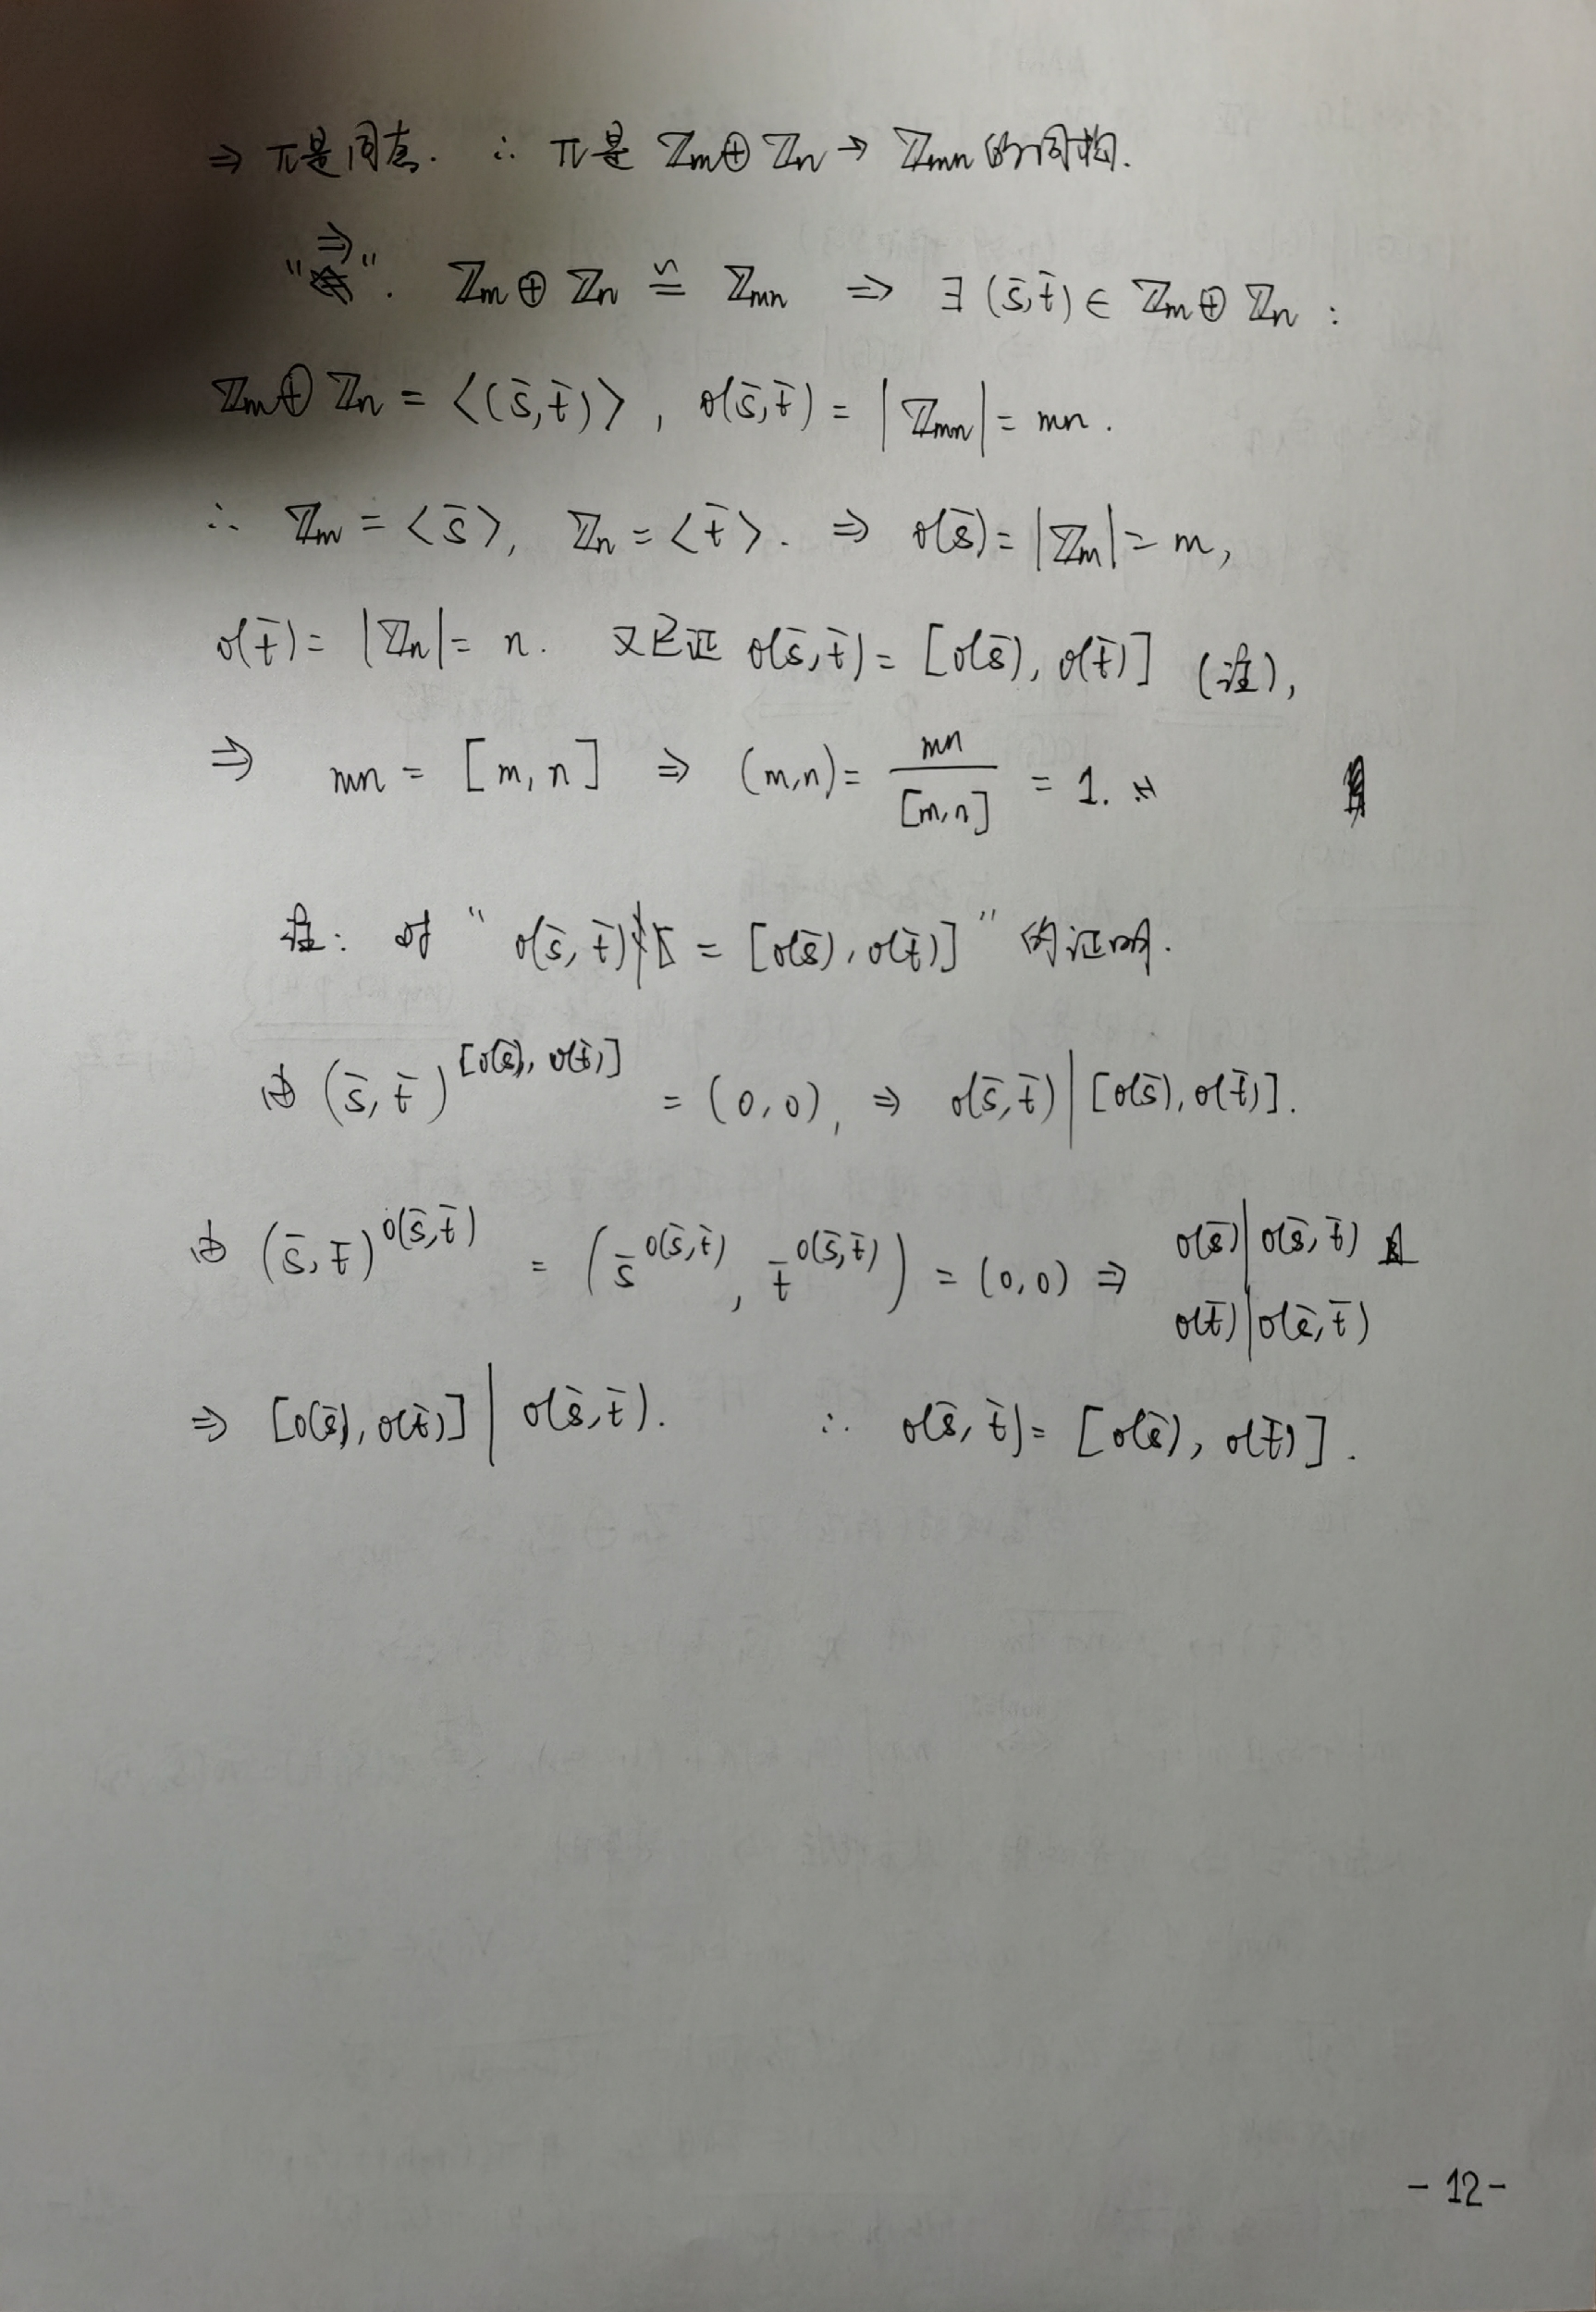 ⇒ π是同态. ∴ π是 ℤm⊕ℤn → ℤmn 的同构.
"⇒". ℤm⊕ℤn ≅ ℤmn ⇒ ∃(s̄,t̄)∈ ℤm⊕ℤn :
ℤm⊕ℤn = ⟨(s̄,t̄)⟩, o(s̄,t̄) = |ℤmn| = mn.
∴ ℤm = ⟨s̄⟩, ℤn = ⟨t̄⟩. ⇒ o(s̄) = |ℤm| = m,
o(t̄) = |ℤn| = n. 又已证 o(s̄,t̄) = [o(s̄), o(t̄)] (注),
⇒ mn = [m,n] ⇒ (m,n) = mn/[m,n] = 1.
注: 对 "o(s̄,t̄) = [o(s̄), o(t̄)]" 的证明.
由 (s̄,t̄)^[o(s̄), o(t̄)] = (0,0), ⇒ o(s̄,t̄) | [o(s̄), o(t̄)].
由 (s̄,t̄)^o(s̄,t̄) = (s̄^o(s̄,t̄), t̄^o(s̄,t̄)) = (0,0) ⇒ o(s̄)|o(s̄,t̄)
o(t̄)|o(s̄,t̄)
⇒ [o(s̄), o(t̄)] | o(s̄,t̄). ∴ o(s̄,t̄) = [o(s̄), o(t̄)].
-12-